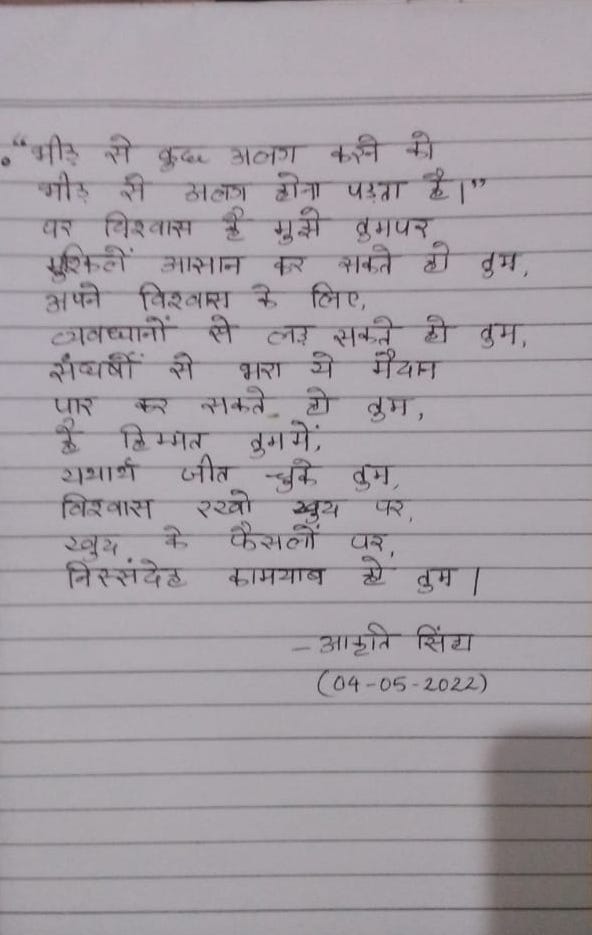 "भीड़ से कुछ अलग करने को
भीड़ से अलग होना पड़ता है।"
पर विश्वास है मुझे तुमपर
मुश्किलें आसान कर सकते हो तुम,
अपने विश्वास के लिए,
व्यवधानों से लड़ सकते हो तुम,
संघर्षों से भरा ये मैदान
पार कर सकते हो तुम,
है हिम्मत तुममें,
यथार्थ जीत चुके तुम,
विश्वास रखो खुद पर,
खुद के फैसलों पर,
निस्संदेह कामयाब हो तुम।
- आकृति सिंह
(04-05-2022)